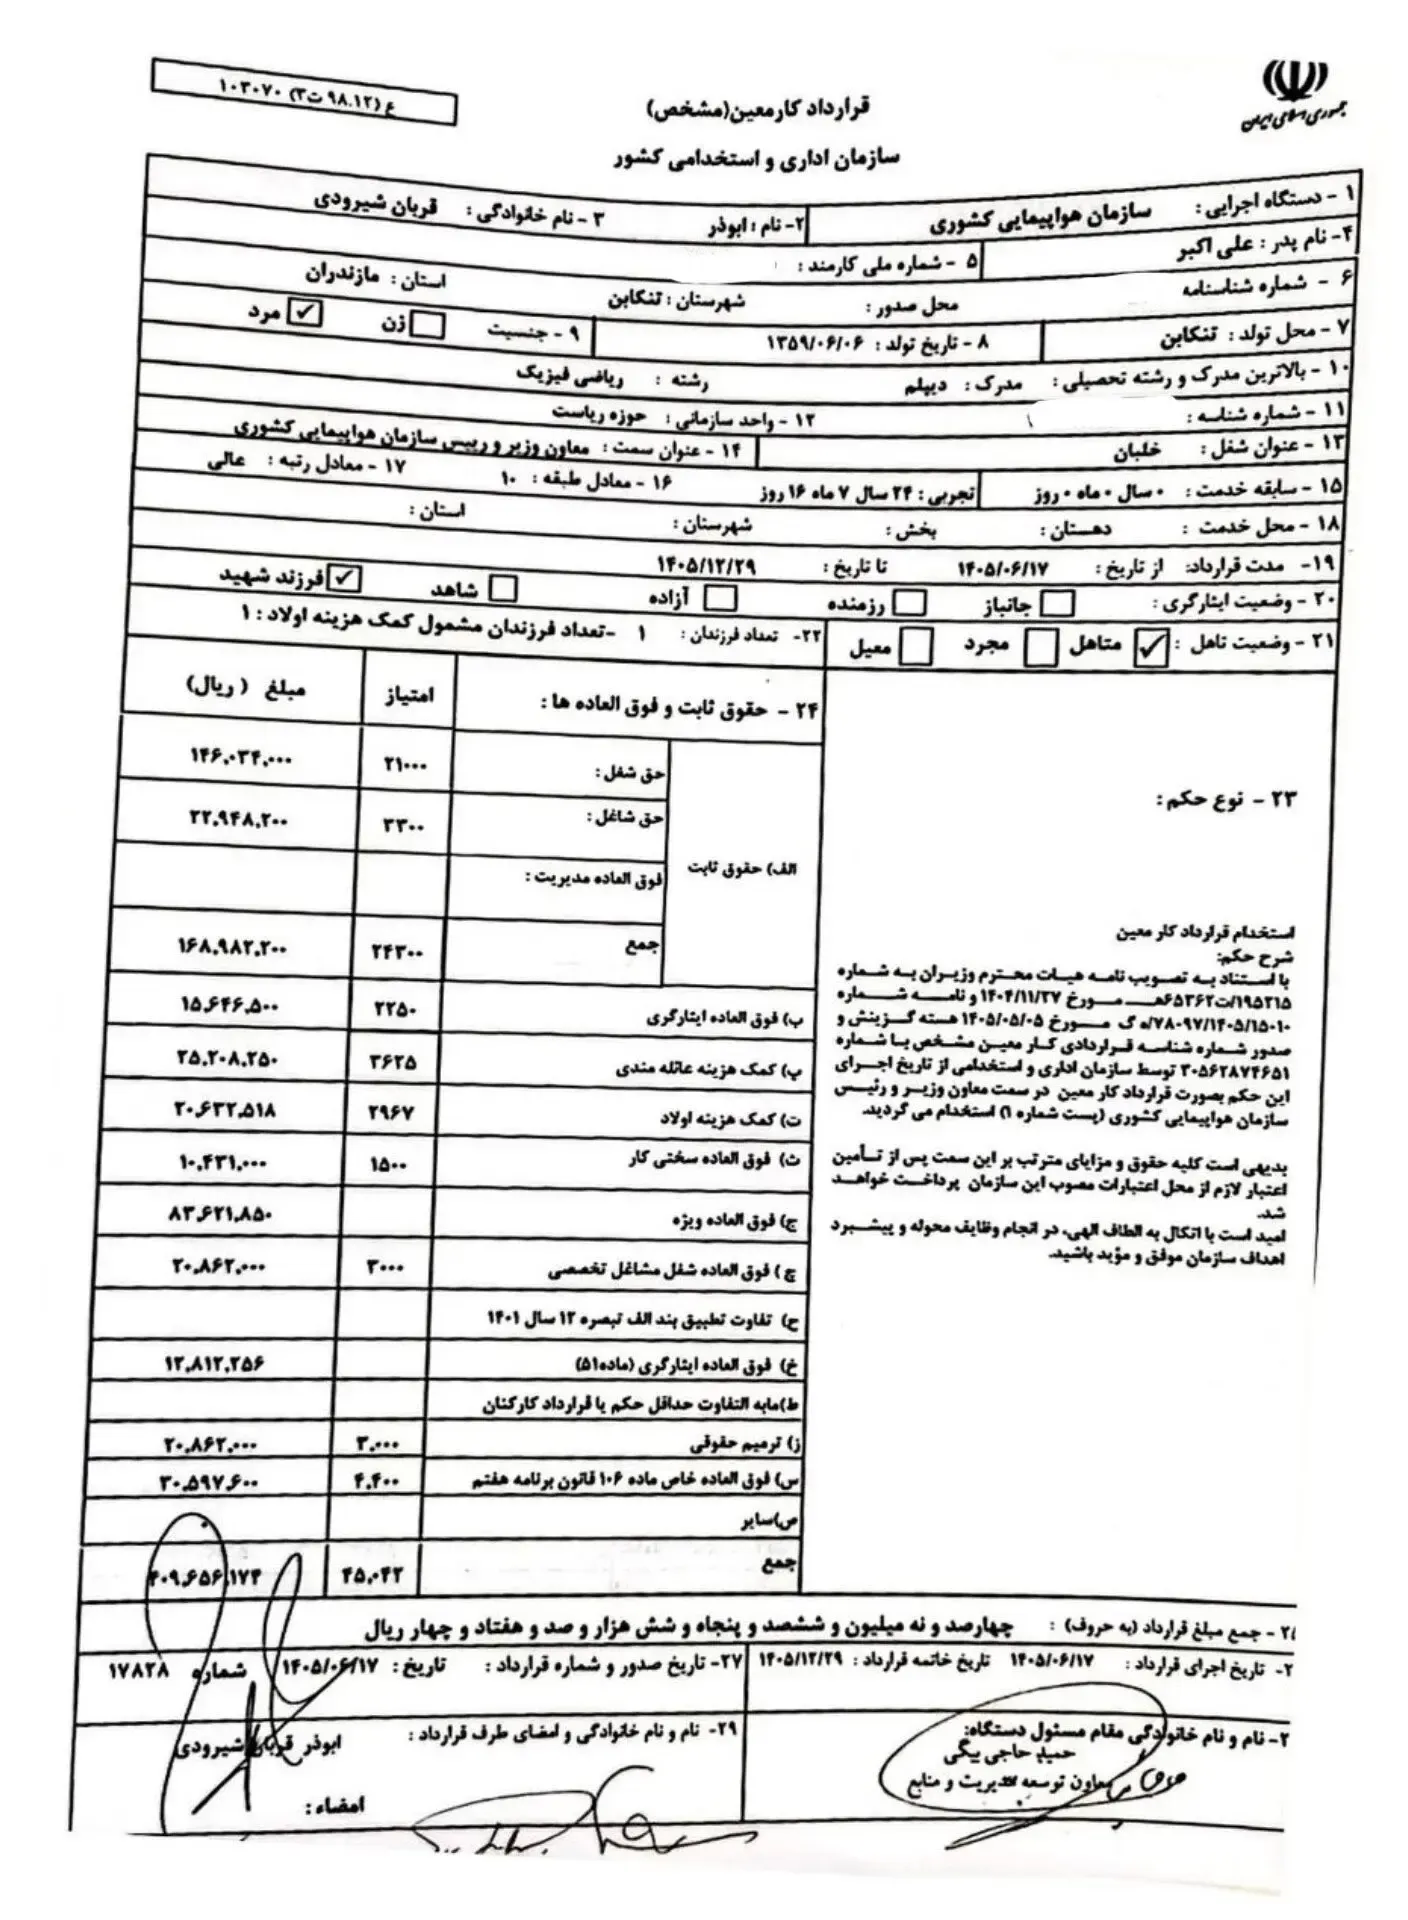 جمهوری اسلامی ایران
ع (۹۸.۱۲ ت۳) ۱۰۳۰۷۰
قرارداد کارمعین(مشخص)
سازمان اداری و استخدامی کشور
۱ - دستگاه اجرایی : سازمان هواپیمایی کشوری ۲- نام : ابوذر ۳ - نام خانوادگی : قربان شیرودی
۴- نام پدر : علی اکبر ۵ - شماره ملی کارمند :
۶ - شماره شناسنامه محل صدور : شهرستان : تنکابن استان : مازندران
۷ - محل تولد : تنکابن ۸ - تاریخ تولد : ۱۳۵۹/۰۶/۰۶ ۹ - جنسیت زن ✓ مرد
۱۰ - بالاترین مدرک و رشته تحصیلی : مدرک : دیپلم رشته : ریاضی فیزیک
۱۱ - شماره شناسه : ۱۲ - واحد سازمانی : حوزه ریاست
۱۳ - عنوان شغل : خلبان ۱۴ - عنوان سمت : معاون وزیر و رییس سازمان هواپیمایی کشوری
۱۵ - سابقه خدمت : ۰ سال ۰ ماه ۰ روز تجربی : ۲۴ سال ۷ ماه ۱۶ روز ۱۶ - معادل طبقه : ۱۰ ۱۷ - معادل رتبه : عالی
۱۸ - محل خدمت : دهستان : بخش : شهرستان : استان :
۱۹- مدت قرارداد: از تاریخ : ۱۴۰۵/۰۶/۱۷ تا تاریخ : ۱۴۰۵/۱۲/۲۹
۲۰ - وضعیت ایثارگری : جانباز رزمنده آزاده شاهد ✓ فرزند شهید
۲۱ - وضعیت تاهل : متاهل ✓ مجرد معیل ۲۲- تعداد فرزندان : ۱ -تعداد فرزندان مشمول کمک هزینه اولاد : ۱
۲۳ - نوع حکم :
استخدام قرارداد کار معین
شرح حکم:
با استناد به تصویب نامه هیات محترم وزیران به شماره
۱۹۵۲۱۵/ت۶۵۳۶۲هـ مورخ ۱۴۰۴/۱۱/۲۷ و نامه شماره
۷۸۰۹۷/۱۴۰۵/۱۵۰۱۰/ه گ مورخ ۱۴۰۵/۰۵/۰۵ هسته گزینش و
صدور شماره شناسه قراردادی کار معین مشخص با شماره
۳۰۵۶۲۸۷۴۶۵۱ توسط سازمان اداری و استخدامی از تاریخ اجرای
این حکم بصورت قرارداد کار معین در سمت معاون وزیر و رئیس
سازمان هواپیمایی کشوری (پست شماره ۱) استخدام می گردید.
بدیهی است کلیه حقوق و مزایای مترتب بر این سمت پس از تأمین
اعتبار لازم از محل اعتبارات مصوب این سازمان پرداخت خواهد
شد.
امید است با اتکال به الطاف الهی، در انجام وظایف محوله و پیشبرد
اهداف سازمان موفق و مؤید باشید.
۲۴ - حقوق ثابت و فوق العاده ها : امتیاز مبلغ ( ریال)
الف) حقوق ثابت
حق شغل : ۲۱۰۰۰ ۱۴۶.۰۳۴.۰۰۰
حق شاغل : ۳۳۰۰ ۲۲.۹۴۸.۲۰۰
فوق العاده مدیریت :
جمع ۲۴۳۰۰ ۱۶۸.۹۸۲.۲۰۰
ب) فوق العاده ایثارگری ۲۲۵۰ ۱۵.۶۴۶.۵۰۰
پ) کمک هزینه عائله مندی ۳۶۲۵ ۲۵.۲۰۸.۲۵۰
ت) کمک هزینه اولاد ۲۹۶۷ ۲۰.۶۳۲.۵۱۸
ث) فوق العاده سختی کار ۱۵۰۰ ۱۰.۴۳۱.۰۰۰
ج) فوق العاده ویژه ۸۳.۶۲۱.۸۵۰
چ) فوق العاده شغل مشاغل تخصصی ۳۰۰۰ ۲۰.۸۶۲.۰۰۰
ح) تفاوت تطبیق بند الف تبصره ۱۲ سال ۱۴۰۱
خ) فوق العاده ایثارگری (ماده۵۱) ۱۲.۸۱۲.۲۵۶
ط)مابه التفاوت حداقل حکم یا قرارداد کارکنان
ز) ترمیم حقوقی ۳.۰۰۰ ۲۰.۸۶۲.۰۰۰
س) فوق العاده خاص ماده ۱۰۶ قانون برنامه هفتم ۴.۴۰۰ ۳۰.۵۹۷.۶۰۰
ص)سایر ۰
جمع ۴۵.۰۴۲ ۴۰۹.۶۵۶.۱۷۴
- جمع مبلغ قرارداد (به حروف) : چهارصد و نه میلیون و ششصد و پنجاه و شش هزار و صد و هفتاد و چهار ریال
- تاریخ اجرای قرارداد : ۱۴۰۵/۰۶/۱۷ تاریخ خاتمه قرارداد : ۱۴۰۵/۱۲/۲۹ ۲۷- تاریخ صدور و شماره قرارداد : تاریخ : ۱۴۰۵/۰۶/۱۷ شماره ۱۷۸۲۸
- نام و نام خانوادگی مقام مسئول دستگاه:
حمید حاجی بیگی
معاون توسعه مدیریت و منابع
۲۹- نام و نام خانوادگی و امضای طرف قرارداد : ابوذر قربان شیرودی
امضاء :